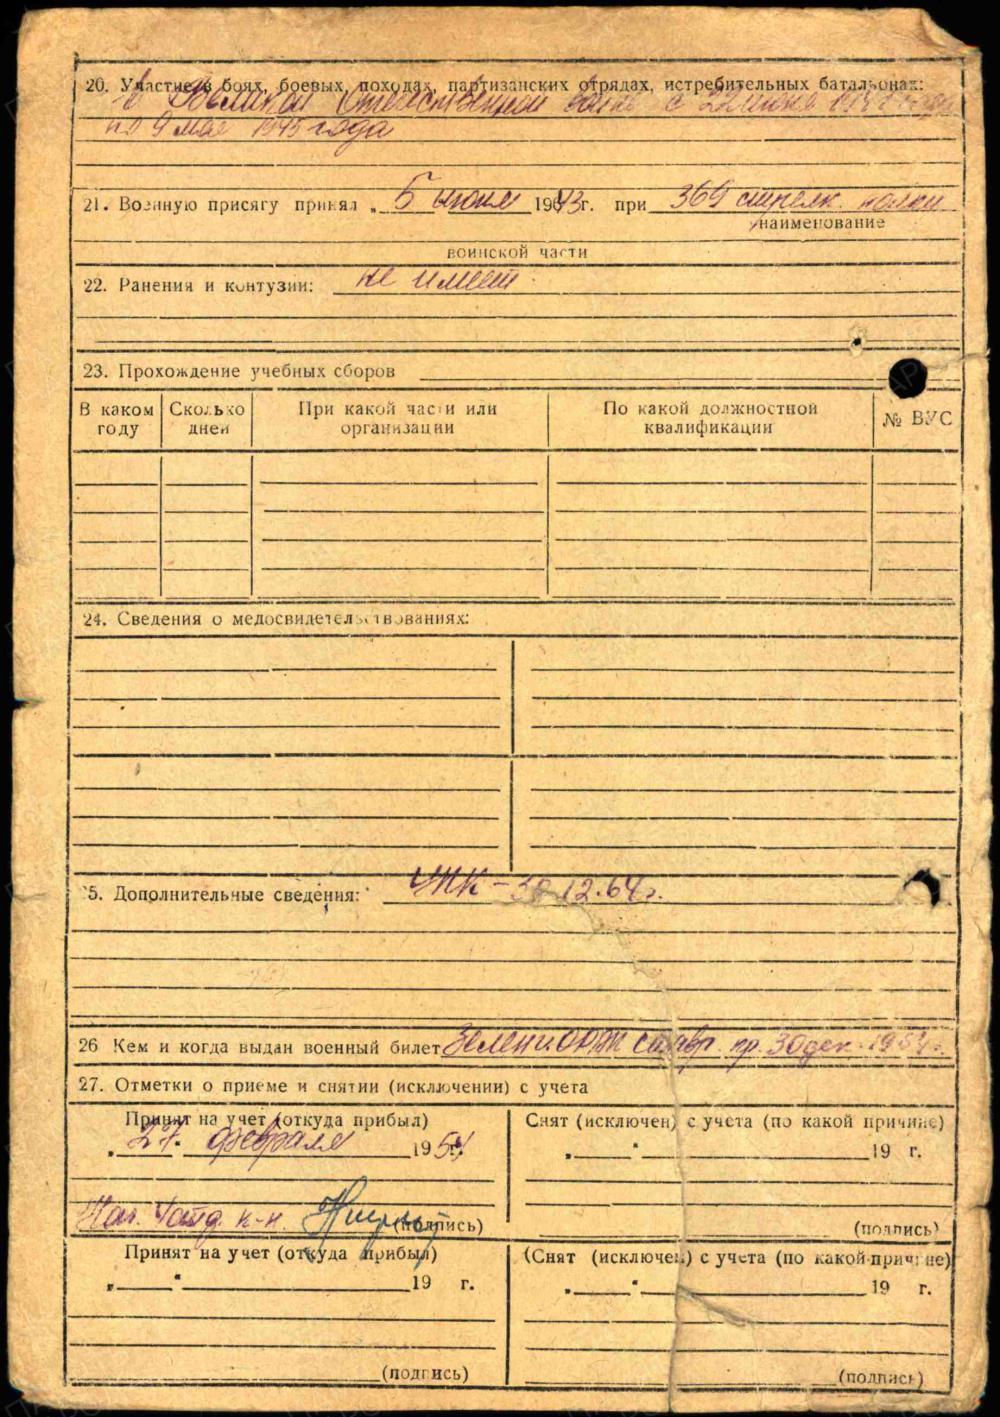 20. Участие в боях, боевых, походах, партизанских отрядах, истребительных батальонах:
в Великой Отечественной войне с 22 июня 1941 года
по 9 мая 1945 года
21. Военную присягу принял „ 5 июля 1943 г. при 369 стрелк. полку
наименование
воинской части
22. Ранения и контузии: не имеет
23. Прохождение учебных сборов
В каком году Сколько дней При какой части или организации По какой должностной квалификации № ВУС
24. Сведения о медосвидетельствованиях:
5. Дополнительные сведения: УПК - 30.12.64г.
26 Кем и когда выдан военный билет ставр. кр. 30 дек. 1954г.
27. Отметки о приеме и снятии (исключении) с учета
Принят на учет (откуда прибыл) Снят (исключен) с учета (по какой причине)
„ 27 " февраля 1954 „ " 19 г.
Нач. (подпись) (подпись)
Принят на учет (откуда прибыл) (Снят (исключен) с учета (по какой причине)
„ " 19 г. „ " 19 г.
(подпись) (подпись)